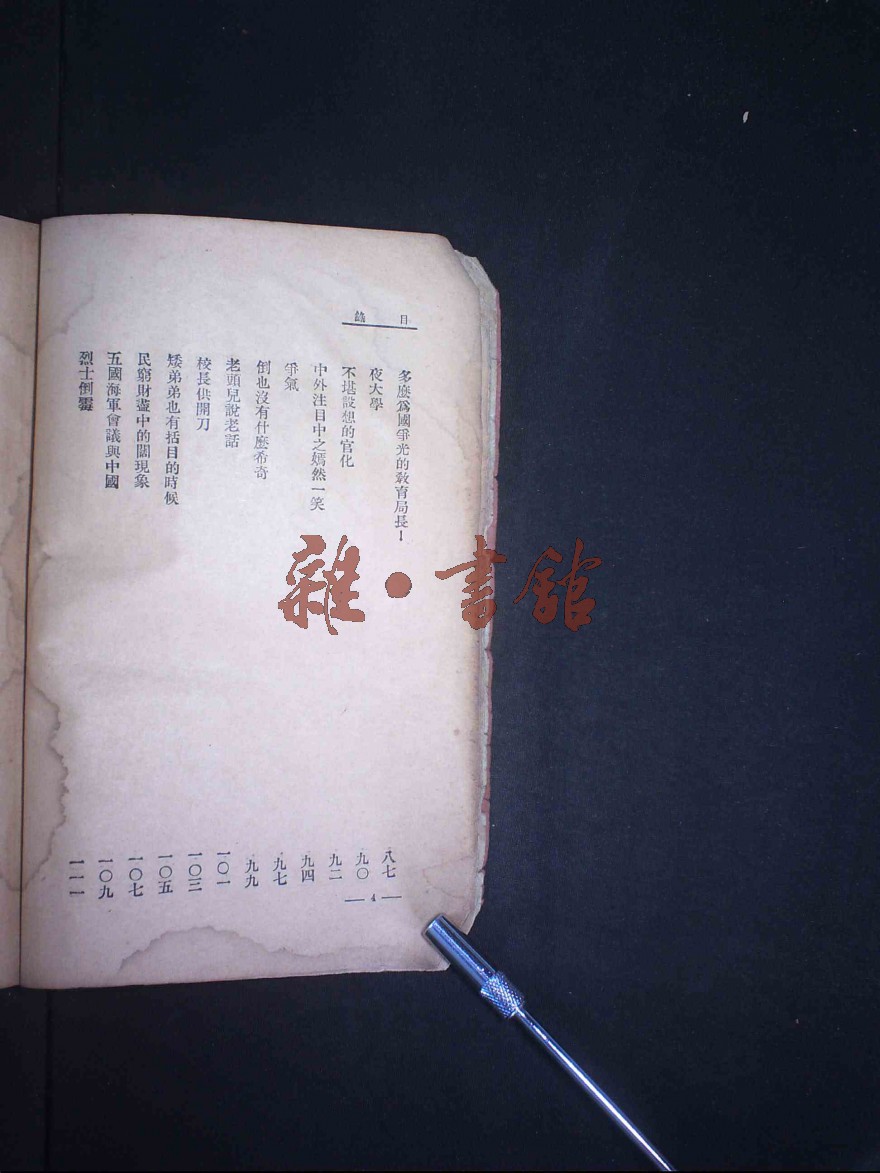 目錄
多麼爲國爭光的敎育局長！
八七
夜大學
九〇
不堪設想的官化
九二
中外注目中之嫣然一笑
九四
爭氣
九七
倒也沒有什麼希奇
九九
老頭兒說老話
一〇一
校長供開刀
一〇三
矮弟弟也有括目的時候
一〇五
民窮財盡中的闊現象
一〇七
五國海軍會議與中國
一〇九
烈士倒霉
一一一
— 4 —
雜·書館